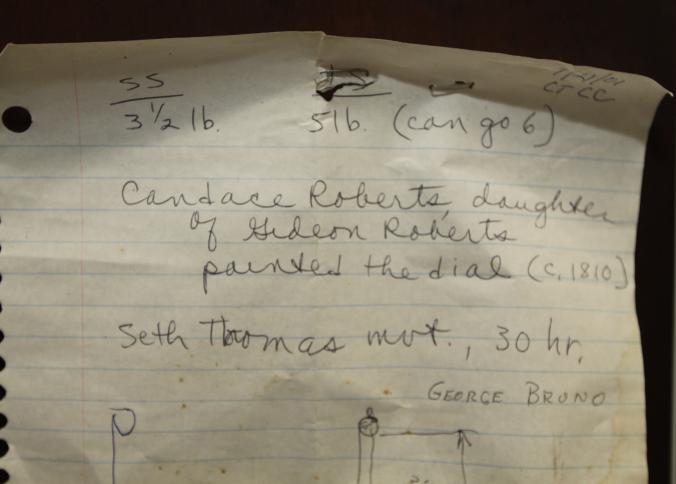 SS
3 1/2 lb.
5 lb. (can go 6)
CTCC
Candace Roberts, daughter
of Gideon Roberts
painted the dial (c. 1810)
Seth Thomas mvt., 30 hr.
GEORGE BRUNO